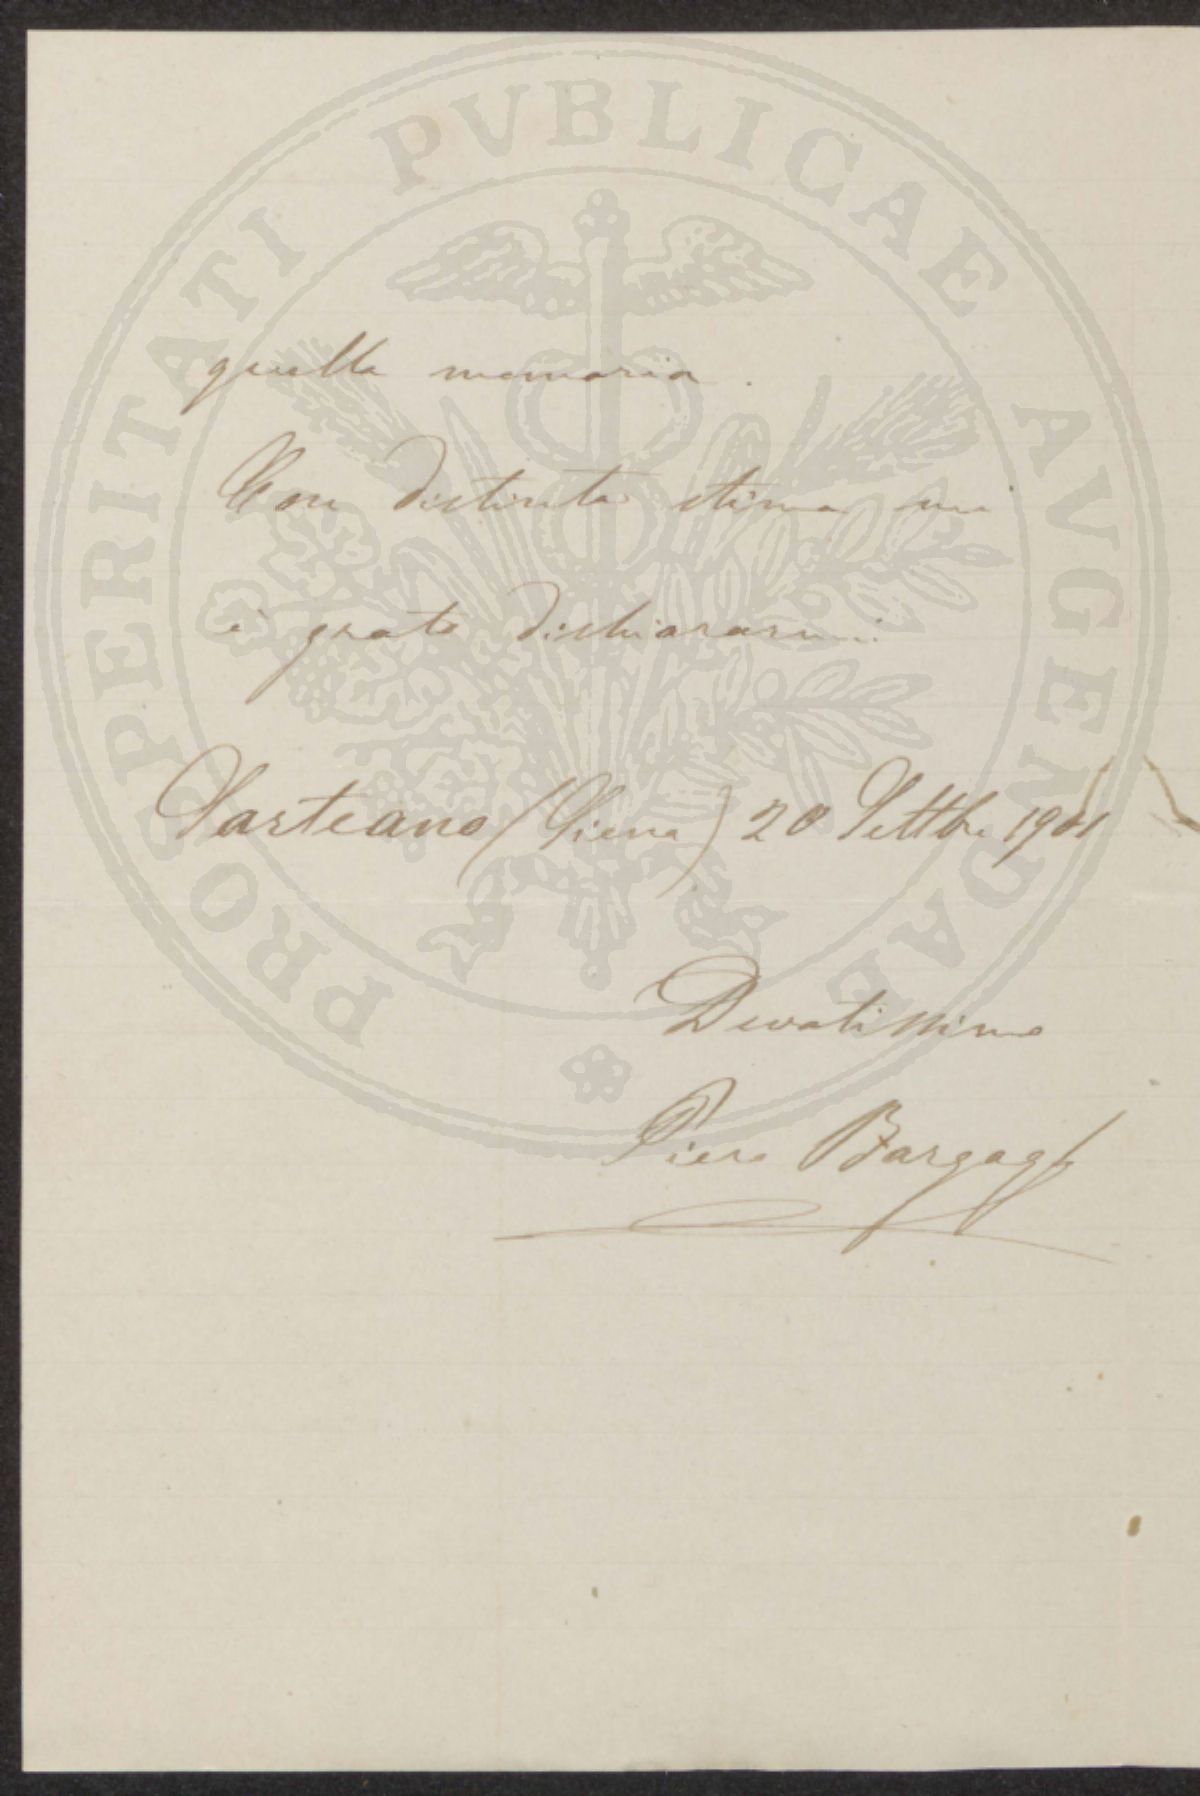 PROSPERITATI PVBLICAE AVGENDAE
quella memoria.
Con distinta stima mi
è grato dichiararmi
Sarteano (Siena) 20 Settbre 1901
Devotissimo
Piero Bargagli